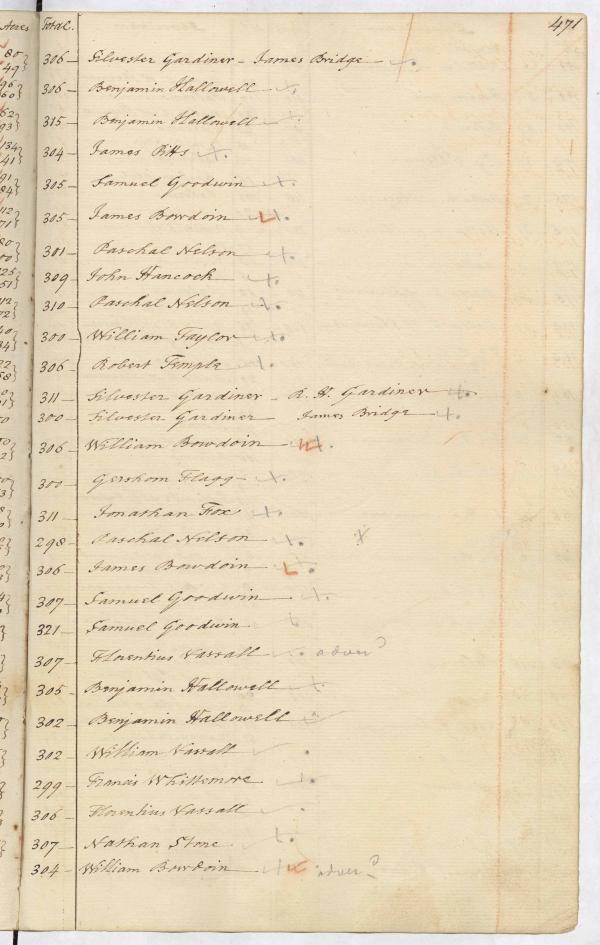 Acres Total. 471
80} 49} 306 — Silvester Gardiner — James Bridge —
96 60} 306 — Benjamin Hallowell —
52} 93} 315 — Benjamin Hallowell —
134 41} 304 — James Pitts
91 84} 305 — Samuel Goodwin
112 71} 305 — James Bowdoin — L
301 — Paschal Nelson
309 — John Hancock —
310 — Paschal Nelson
300 — William Taylor —
306 — Robert Temple
311 — Silvester Gardiner — R. H. Gardiner
300 — Silvester Gardiner — James Bridge —
306 — William Bowdoin —
300 — Gershom Flagg —
311 — Jonathan Fox
298 — Paschal Nelson
306 — James Bowdoin L
307 — Samuel Goodwin
321 — Samuel Goodwin
307 — Florentius Vassall adver?
305 — Benjamin Hallowell
302 — Benjamin Hallowell
302 — William Vassall
299 — Francis Whittemore
306 — Florentius Vassall
307 — Nathan Stone
304 — William Bowdoin — adver?